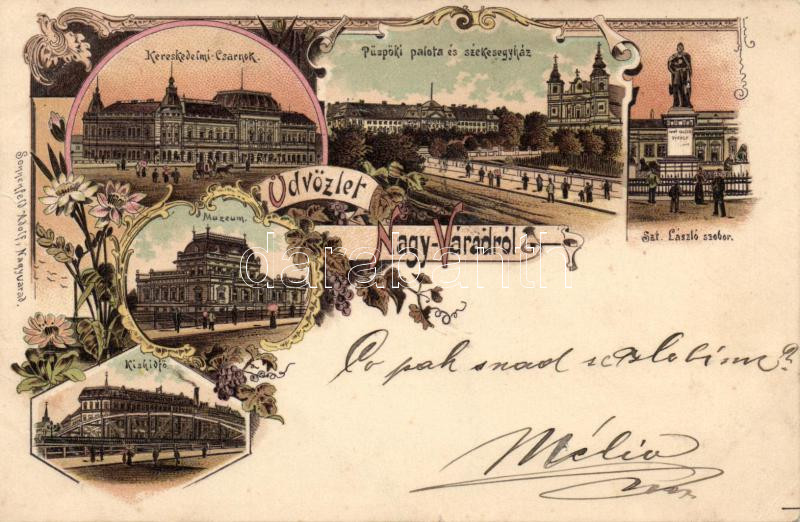 Kereskedelmi-Csarnok.
Püspöki palota és székesegyház
Szt. László szobor.
Üdvözlet
Nagy-Váradról
Muzeum.
Kishidfő
Sonnenfeld Adolf, Nagyvárad.
darabanth
Co pak snad